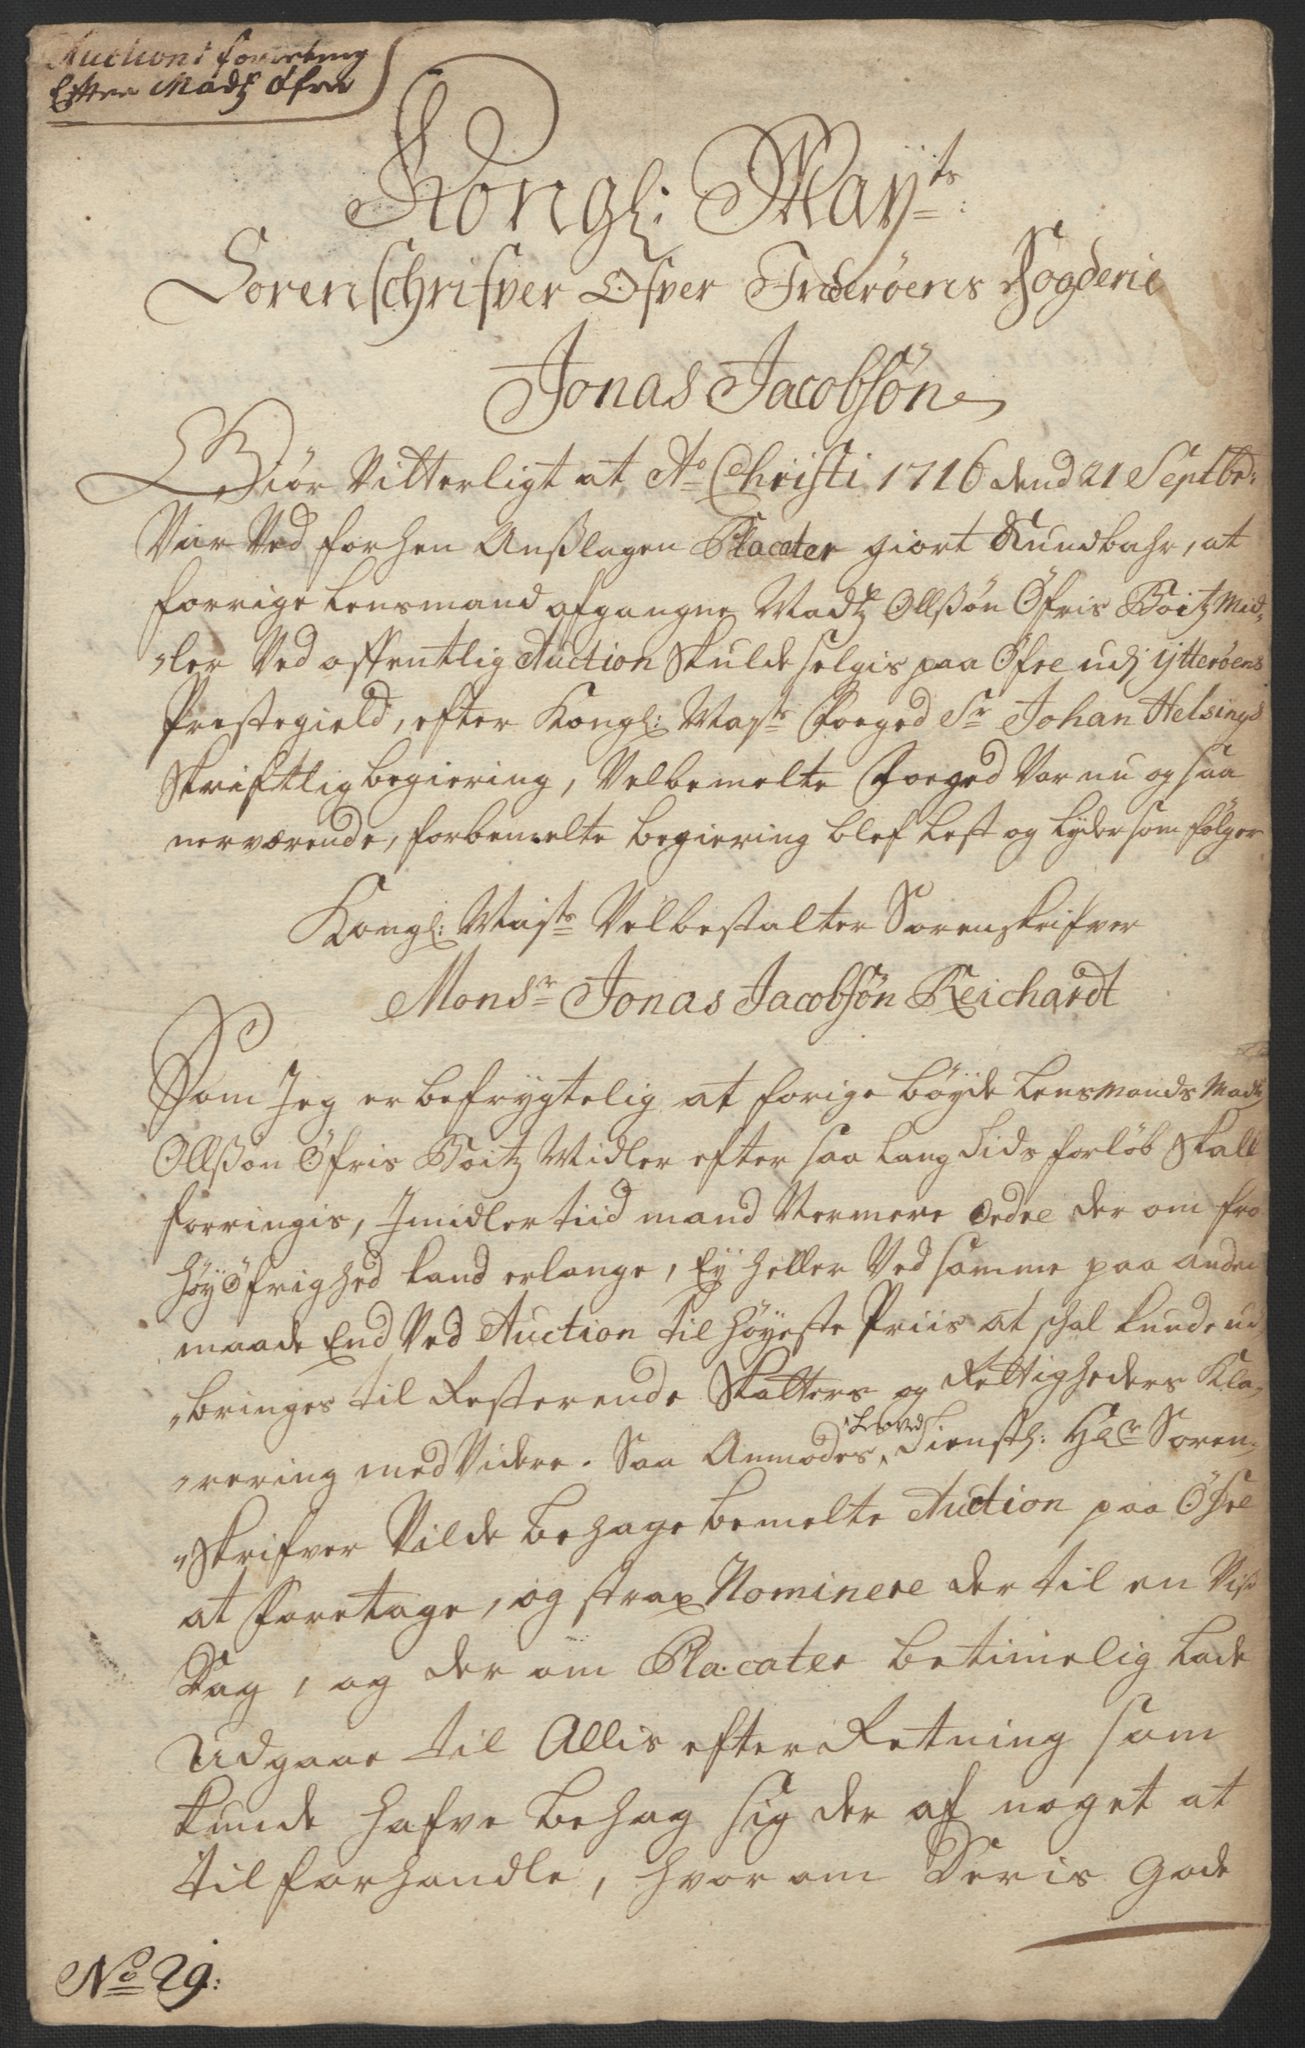 Auctions forretning
Efter Madz Øfre
Kongl: May:ts
Sorenschrifver Ofver Inderøens Fogderie
Jonas Jacobsøn
Giør Vitterligt at Ao Christi 1716 dend 21 Septbr:
Var Ved forhen Anslagen Placater giort Kundbahr, at
forrige Lensmand afgangne Madz Ollßøn Øfris Boitz Mid=
„ler Ved offentlig Auction skulde selgis paa Øfre udj Ytterøens
Prestegield, efter Kongl: Mayts Foeged Sr Johan Helsings
skriftlig begiering, Velbemelte Foeged Var nu og saa
nerværende, forbemelte begiering blef lest og lyder som følger
Kongl: Mayts Velbestalter Sorenskrifver
Monsr Jonas Jacobsøn Reichardt
Som Jeg er befrygtelig at forige bøyde Lensmands Madz
Ollßøn Øfris Boitz Midler efter saa lang tids forløb skall
forringis, Imidlertiid mand Nermere Ordre der om fra
høy Øfrighed kand erlange, Ey heller Ved samme paa anden
maade End Ved Auction til høyeste Priis at schal kunde ud
„bringes til Resterende Skatters og Rettigheders Kla„
„rering med Videre. Saa Anmodes, tienstl: Hr Soren„
„skrifver Vilde behage bemelte Auction paa Øfre
at foretage, og strax Nominere der til en Viß
Dag, og der om Placater betimelig lade
Udgaae til Allis efter Retning som
kunde hafve behag sig der af noget at
tilforhandle, hvor om Deris gode
No 29: